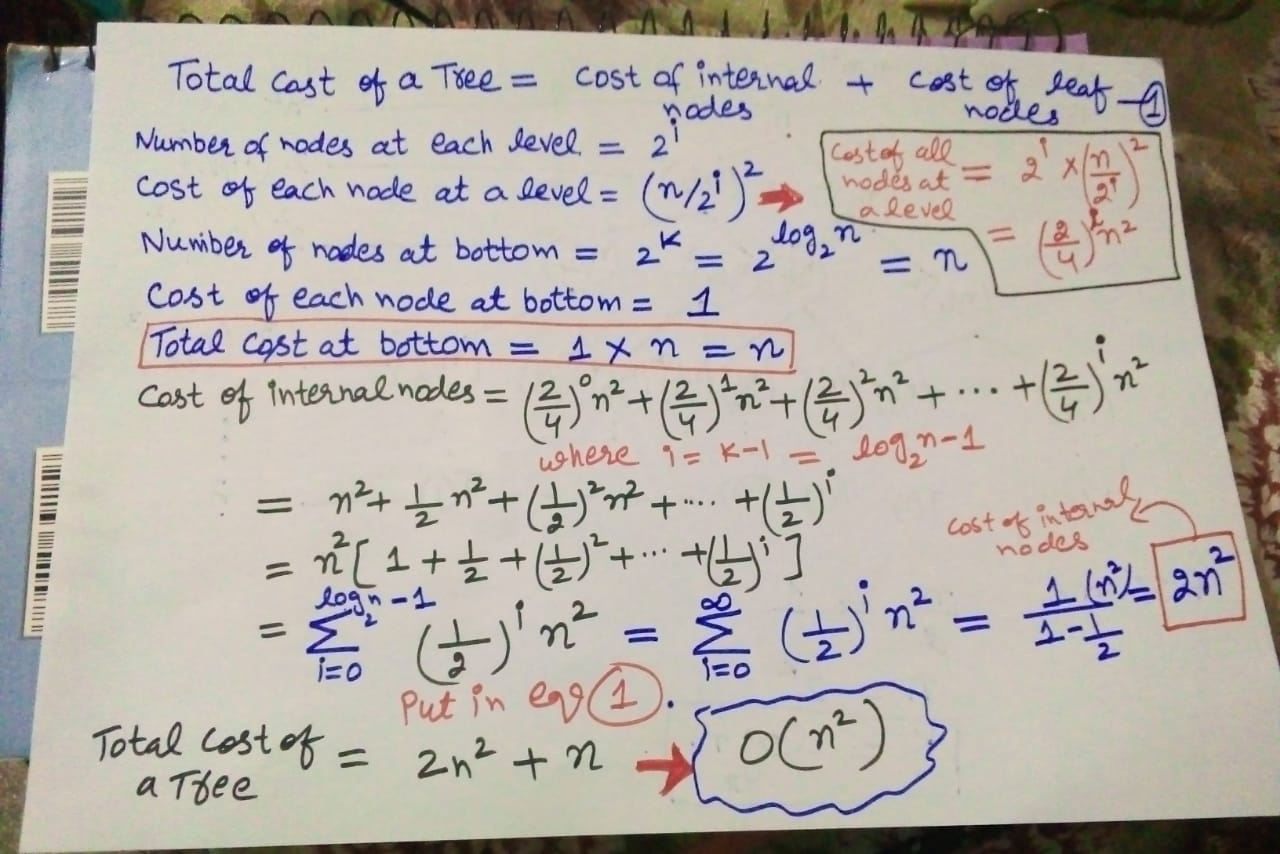 Total Cost of a Tree = Cost of internal nodes + Cost of leaf nodes — ①
Number of nodes at each level = 2^i
Cost of each node at a level = (n/2^i)^2 →
Cost of all nodes at a level = 2^i × (n/2^i)^2
= (2/4)^i n^2
Number of nodes at bottom = 2^k = 2^(log₂n) = n
Cost of each node at bottom = 1
Total Cost at bottom = 1 × n = n
Cost of internal nodes = (2/4)^0 n^2 + (2/4)^1 n^2 + (2/4)^2 n^2 + ... + (2/4)^i n^2
where i = k-1 = log₂n-1
= n^2 + 1/2 n^2 + (1/2)^2 n^2 + .... + (1/2)^i
= n^2 [ 1 + 1/2 + (1/2)^2 + ... + (1/2)^i ]
Cost of internal nodes
= Σ_(i=0)^(log₂n-1) (1/2)^i n^2 = Σ_(i=0)^∞ (1/2)^i n^2 = 1/(1-1/2) (n^2) = 2n^2
Put in eq ①.
Total Cost of a Tree = 2n^2 + n → O(n^2)